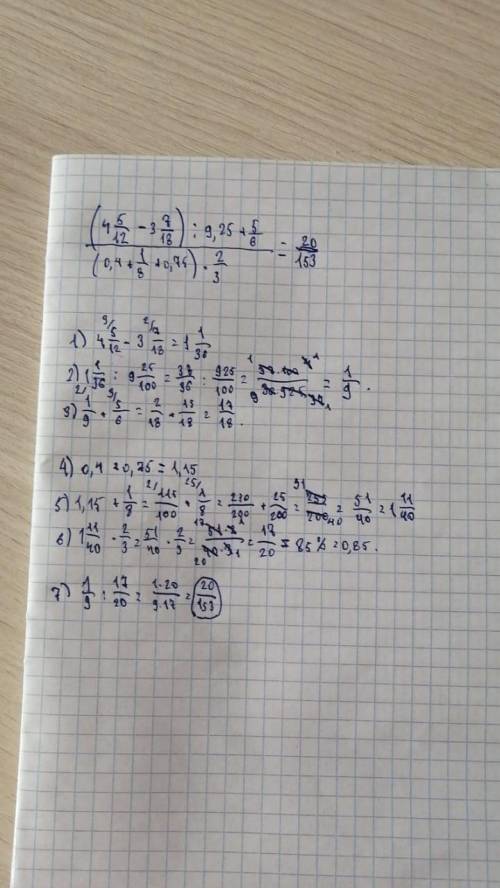 (4 5/12 - 3 7/18) : 9,25 + 5/6
(0,4 + 1/8 + 0,75) · 2/3 = 20/153
1) 4 5/12 - 3 7/18 = 1 1/36
2) 1 1/36 : 9 25/100 = 37/36 : 925/100 = = 1/9.
3) 1/9 + 5/6 = 2/18 + 15/18 = 17/18.
4) 0,4 + 0,75 = 1,15
5) 1,15 + 1/8 = 115/100 + 1/8 = 230/200 + 25/200 = 255/200 = 51/40 = 1 11/40
6) 1 11/40 · 2/3 = 51/40 · 2/3 = 51·2/40·3 = 17/20 = 85% = 0,85.
7) 1/9 : 17/20 = 1·20/9·17 = 20/153